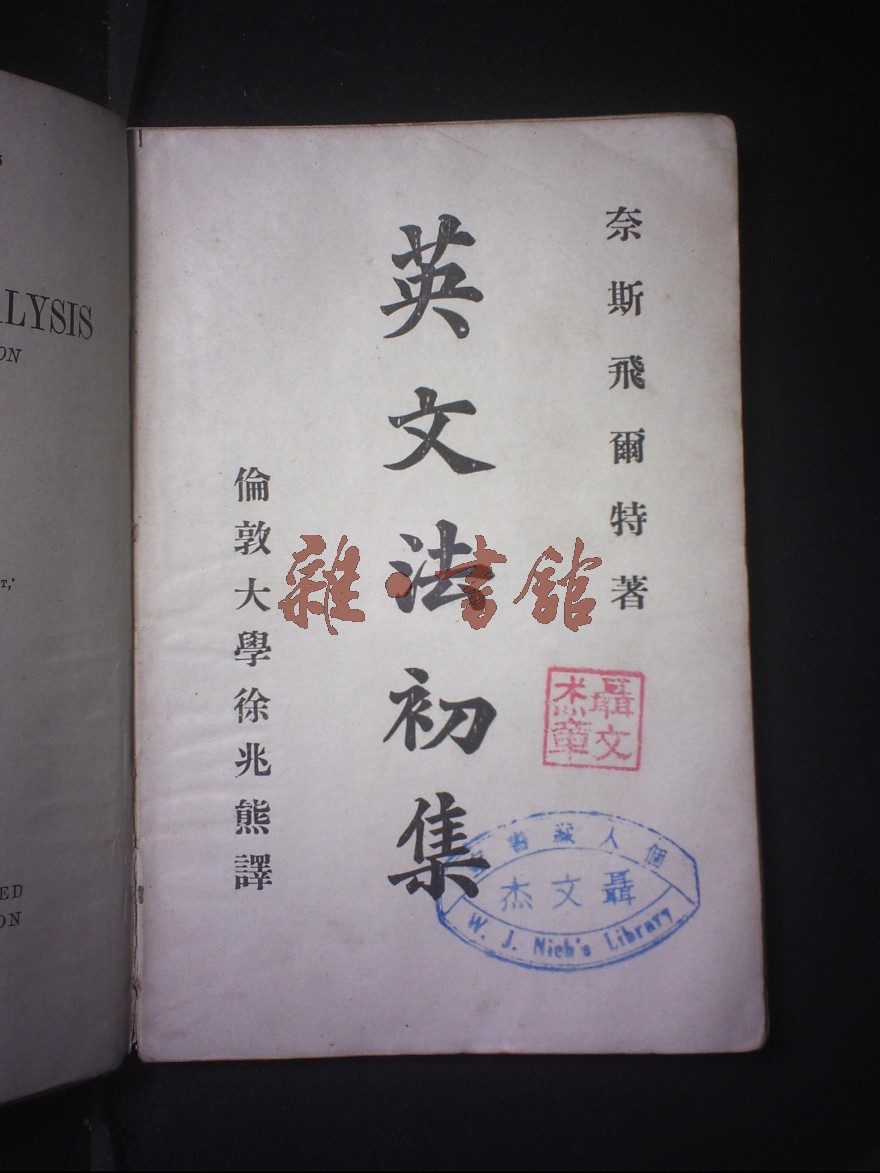 LYSIS
ON
T,'
ED
ON
奈斯飛爾特著
英文法初集
倫敦大學徐兆熊譯
雜·書館
聶文杰章
個人藏書
聶文杰
W. J. Nieh's Library